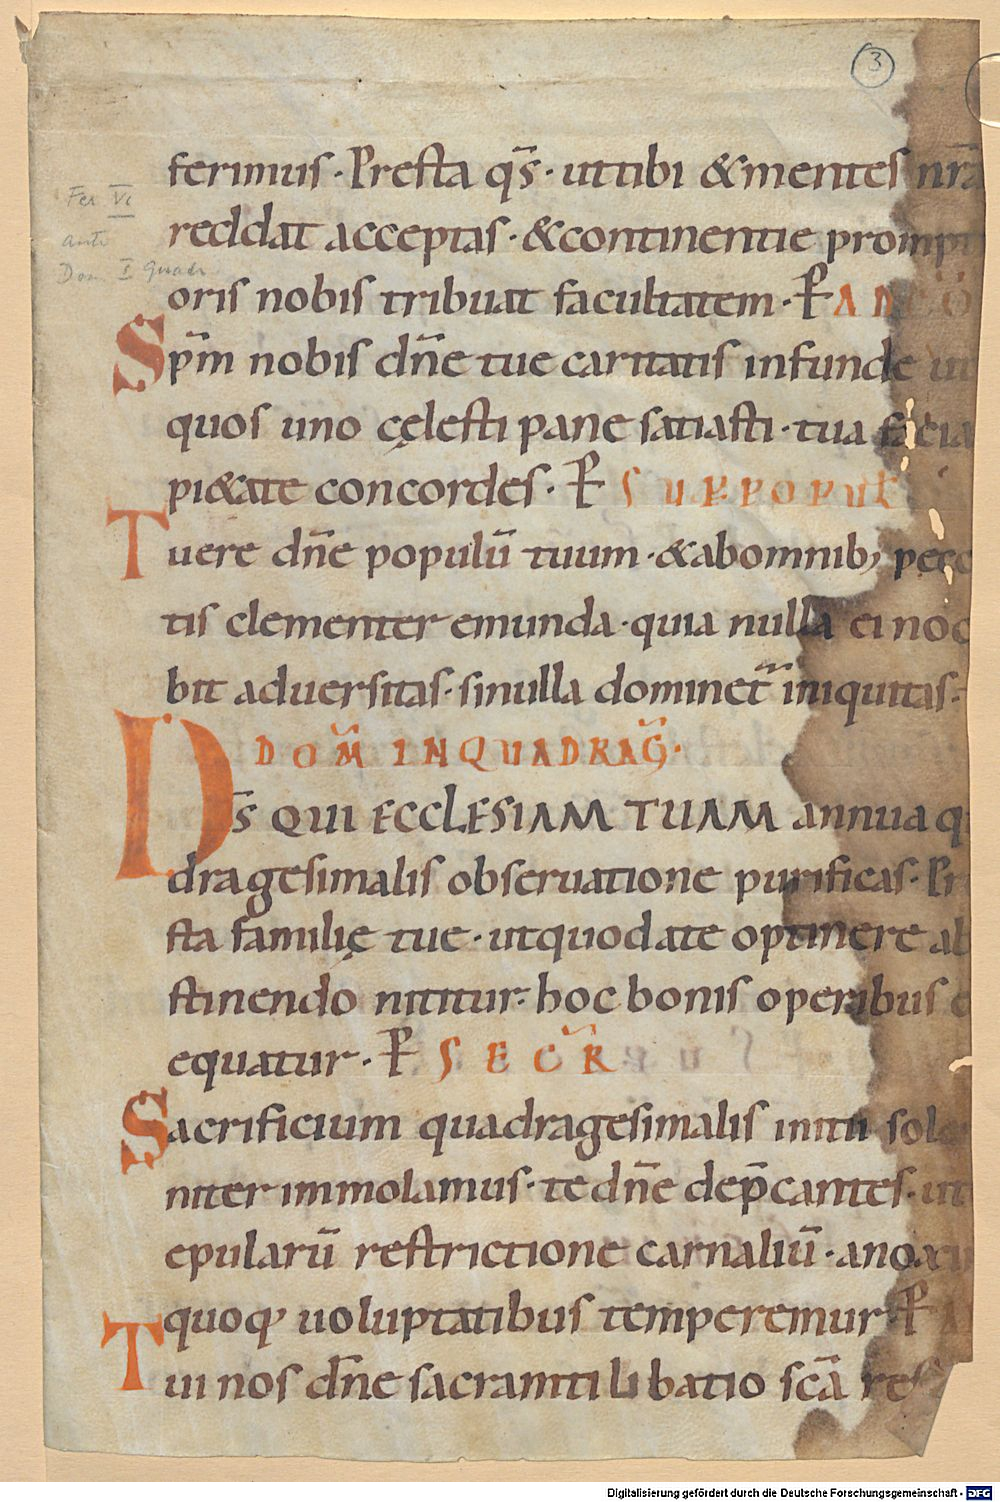 3
ferimus · Presta q̄s · ut tibi &mentes nr̄a
Fer VI
reddat acceptas · &continentie prompt
ante
Dom I Quadr
oris nobis tribuat facultatem · P̄ AD CŌ
Sp̄m nobis dn̄e tue caritatis infunde ut
quos uno cęlesti pane satiasti · tua facia
pi&ate concordes · P̄ SUP POPUL
Tuere dn̄e populū tuum · &abomnib; pecc
tis clementer emunda · quia nulla ei noc
bit aduersitas · sinulla dominet᷑ iniquitas ·
DOM̄ IN QUADRAG̃ ·
Ds̄ QUI ECCLESIAM TUAM annua q
dragesimalis obseruatione purificas · Pr
sta familię tue · utquod a te optinere ab
stinendo nititur · hoc bonis operibus e
equatur · P̄ SECR̃
Sacrificium quadragesimalis initii sole
niter immolamus · te dn̄e dep̄cantes · ut
epularū restrictione carnaliū · anoxiis
quoq; uoluptatibus temperemur P̄ A
Tui nos dn̄e sacramti libatio scā res
Digitalisierung gefördert durch die Deutsche Forschungsgemeinschaft - DFG